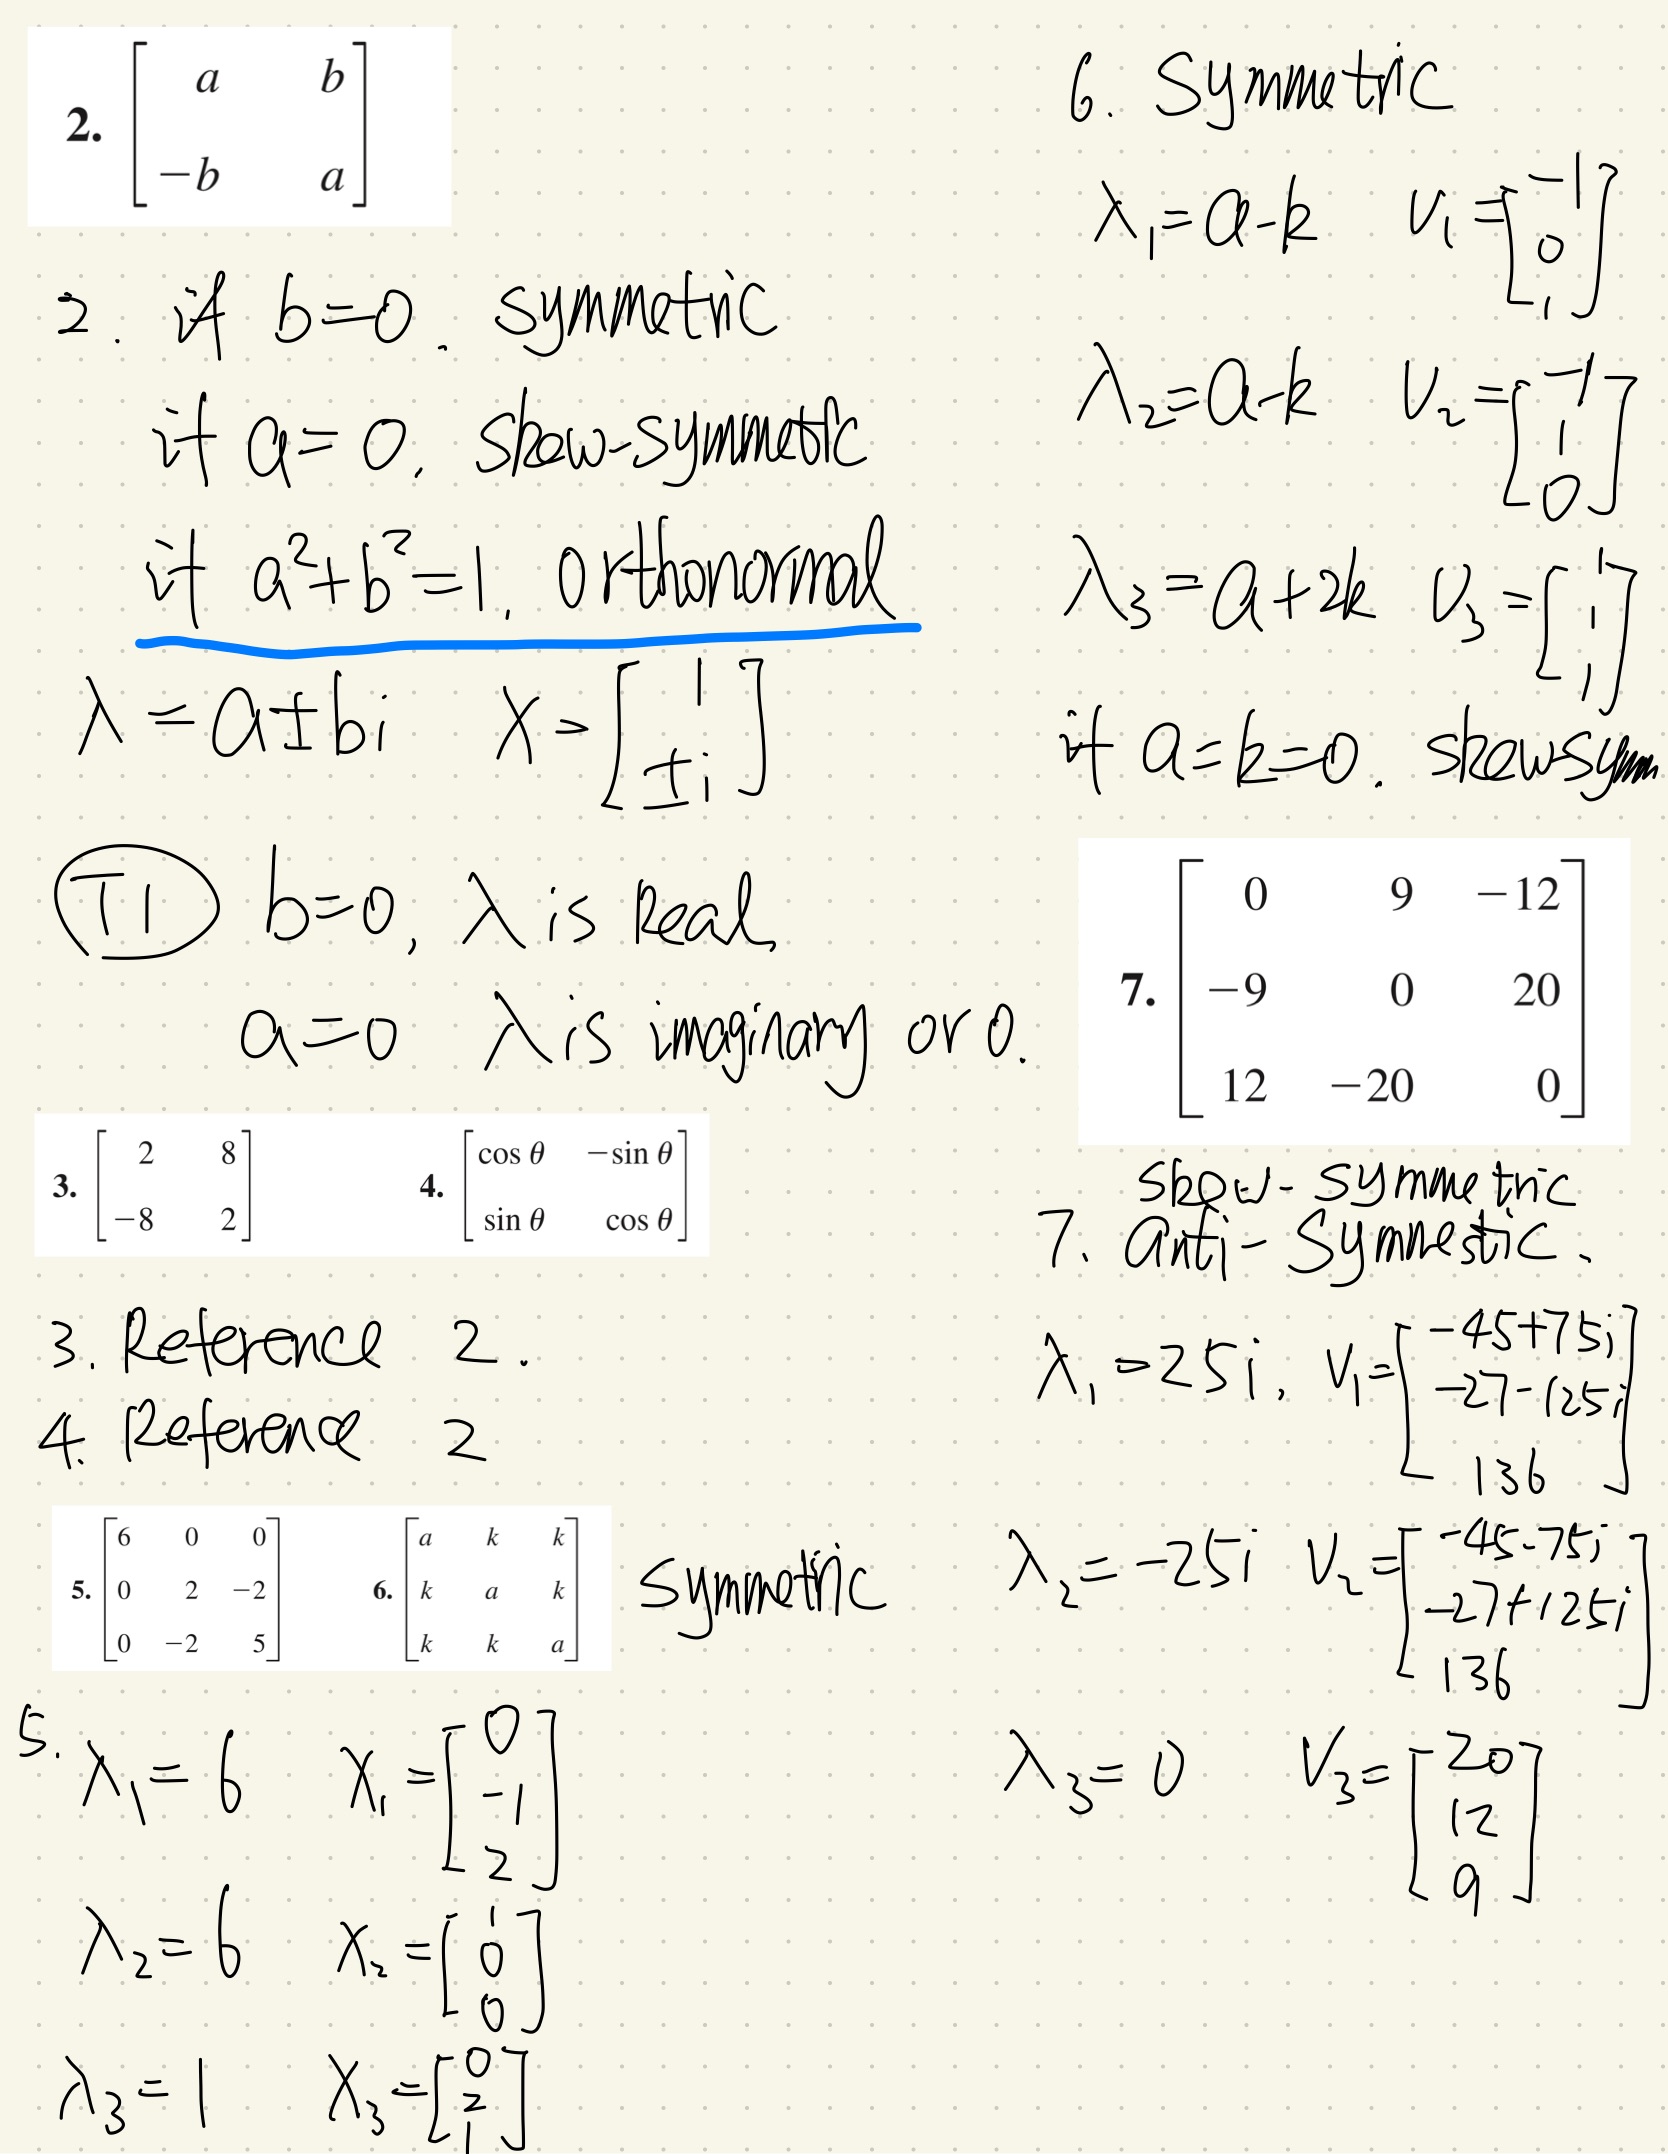 2. [ a b
-b a ]
2. if b=0. symmetric
if a=0. skew-symmetric
if a²+b²=1. orthonormal
λ=a±bi X=[ 1
±i ]
T1 b=0, λ is Real,
a=0 λ is imaginary or 0.
3. [ 2 8
-8 2 ]
4. [ cos θ -sin θ
sin θ cos θ ]
3. Reference 2.
4. Reference 2
5. [ 6 0 0
0 2 -2
0 -2 5 ]
6. [ a k k
k a k
k k a ]
symmetric
5. λ₁=6 X₁=[ 0
-1
2 ]
λ₂=6 X₂=[ 1
0
0 ]
λ₃=1 X₃=[ 0
2
1 ]
6. Symmetric
λ₁=a-k V₁=[ -1
0
1 ]
λ₂=a-k V₂=[ -1
1
0 ]
λ₃=a+2k V₃=[ 1
1
1 ]
if a=k=0. skew-symm
7. [ 0 9 -12
-9 0 20
12 -20 0 ]
skew-symmetric
7. anti-symmestic.
λ₁=25i, V₁=[ -45+75i
-27-125i
136 ]
λ₂=-25i V₂=[ -45-75i
-27+125i
136 ]
λ₃=0 V₃=[ 20
12
9 ]